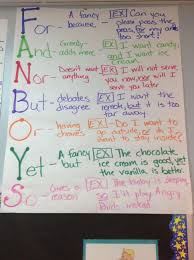 For - A fancy because [EX] Can you please pass the peas, for my arms are too short!
And - Creately adds more [EX] I want candy, and I want ice cream.
Nor - Doesn't want anything [EX] I will not serve you now, nor will I serve you later
But - debates disagree [EX] I want the remote, but it is too far away
Or - having choices [EX] - Do I want to go outside, or do I want to stay in
Yet - A fancy but [EX] The chocolate ice cream is good, yet the vanilla is better.
So - Gives a reason [EX] The baby is sleeping, so I'll play Angry Birds instead.